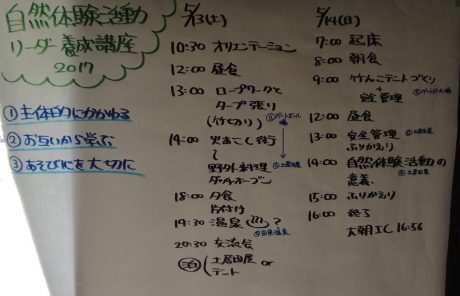 自然体験活動
リーダー養成講座
2017
①主体的にかかわる
②お互いから学ぶ
③あそび心を大切に
5/13(土)
10:30 オリエンテーション
12:00 昼食
13:00 ロープワークと
タープ張り
(竹切り)
14:00 火おこし術
〜
野外料理
ダッチオーブン
18:00 夕食
片付け
19:30 温泉
20:30 交流会
泊 土居田屋 or
テント
5/14(日)
7:00 起床
8:00 朝食
9:00 竹んこテントづくり
+
安全管理
12:00 昼食
13:00 安全管理
ふりかえり
14:00 自然体験活動の
意義
15:00 ふりかえり
16:00 終了
大朝IC 16:56